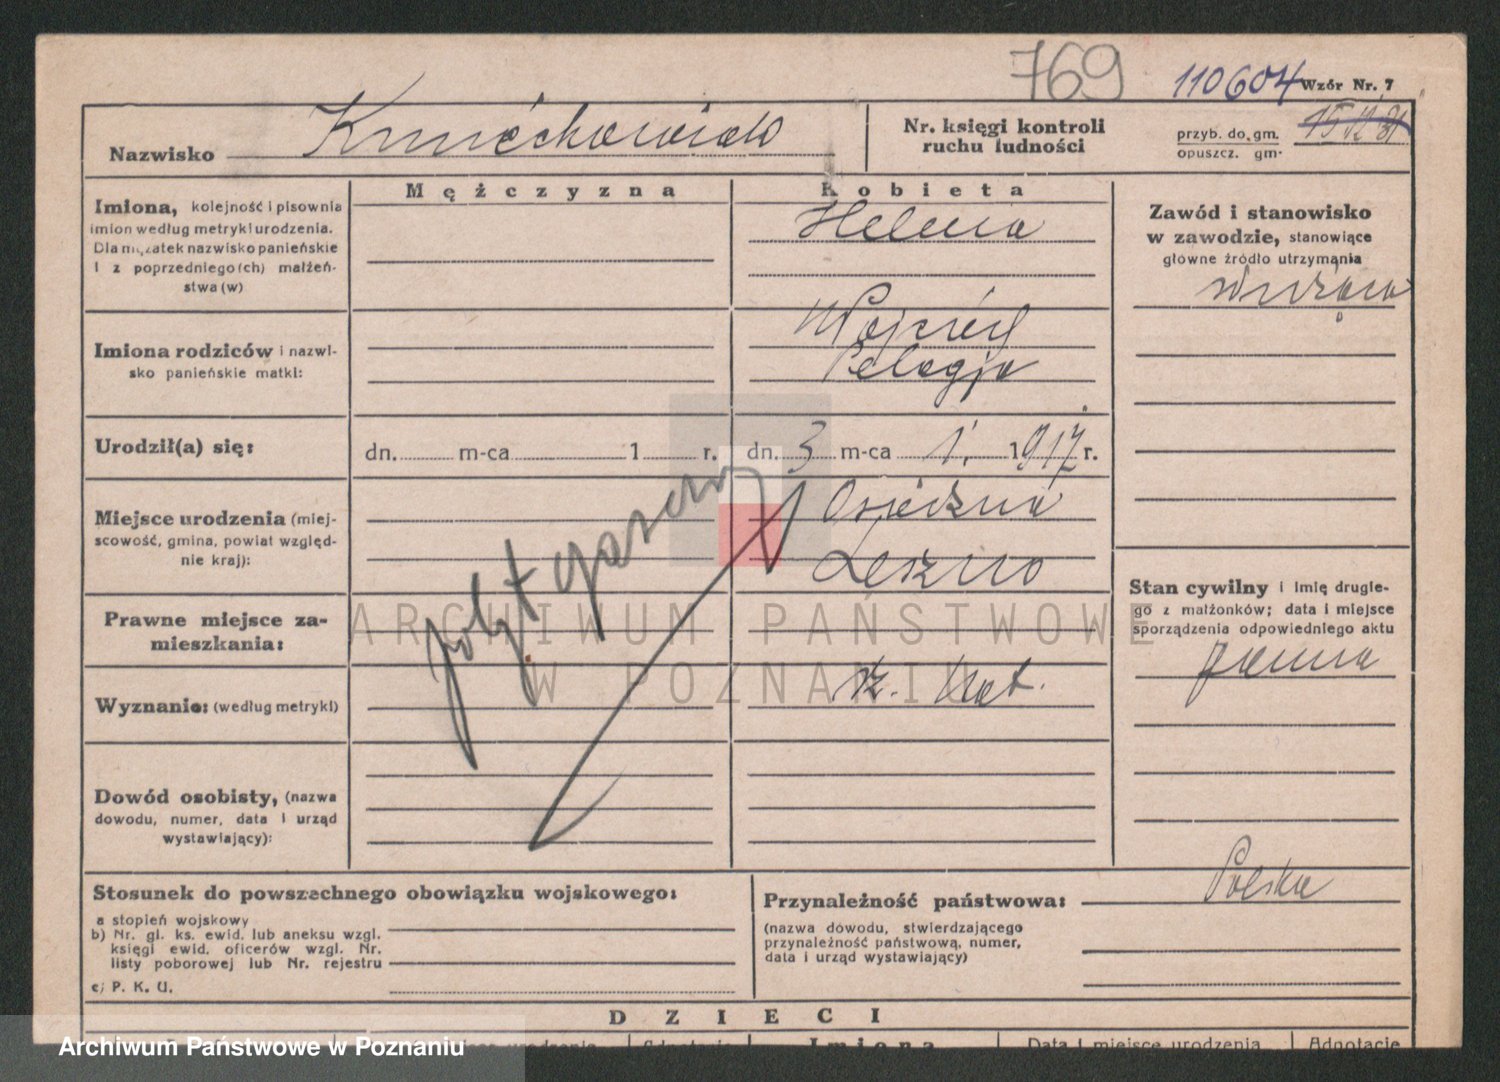 769
110604 Wzór Nr. 7
Nazwisko
Nr. księgi kontroli
ruchu ludności
przyb. do gm.
opuszcz. gm.
15/12 31
Mężczyzna
Kobieta
Imiona, kolejność i pisownia
imion według metryki urodzenia.
Dla mężatek nazwisko panieńskie
i z poprzedniego(ch) małżeń-
stwa (w)
Helena
Zawód i stanowisko
w zawodzie, stanowiące
główne źródło utrzymania
służąca
Imiona rodziców i nazwi-
sko panieńskie matki:
Wojciech
Pelagja
Urodził(a) się:
dn. m-ca 1 r.
dn. 3 m-ca 1. 1917 r.
Miejsce urodzenia (miej-
scowość, gmina, powiat względ-
nie kraj):
Osieczna
Leszno
Stan cywilny i imię drugie-
go z małżonków; data i miejsce
sporządzenia odpowiedniego aktu
panna
Prawne miejsce za-
mieszkania:
Wyznanie: (według metryki)
rz. kat.
Dowód osobisty, (nazwa
dowodu, numer, data i urząd
wystawiający):
Stosunek do powszechnego obowiązku wojskowego:
a stopień wojskowy
b) Nr. gl. ks. ewid. lub aneksu wzgl.
księgi ewid. oficerów wzgl. Nr.
listy poborowej lub Nr. rejestru
c) P. K. U.
Przynależność państwowa: Polska
(nazwa dowodu, stwierdzającego
przynależność państwową, numer,
data i urząd wystawiający)
DZIECI
Imiona
Data i miejsce urodzenia
Adnotacje
ARCHIWUM PAŃSTWOWE
W POZNANIU
Archiwum Państwowe w Poznaniu